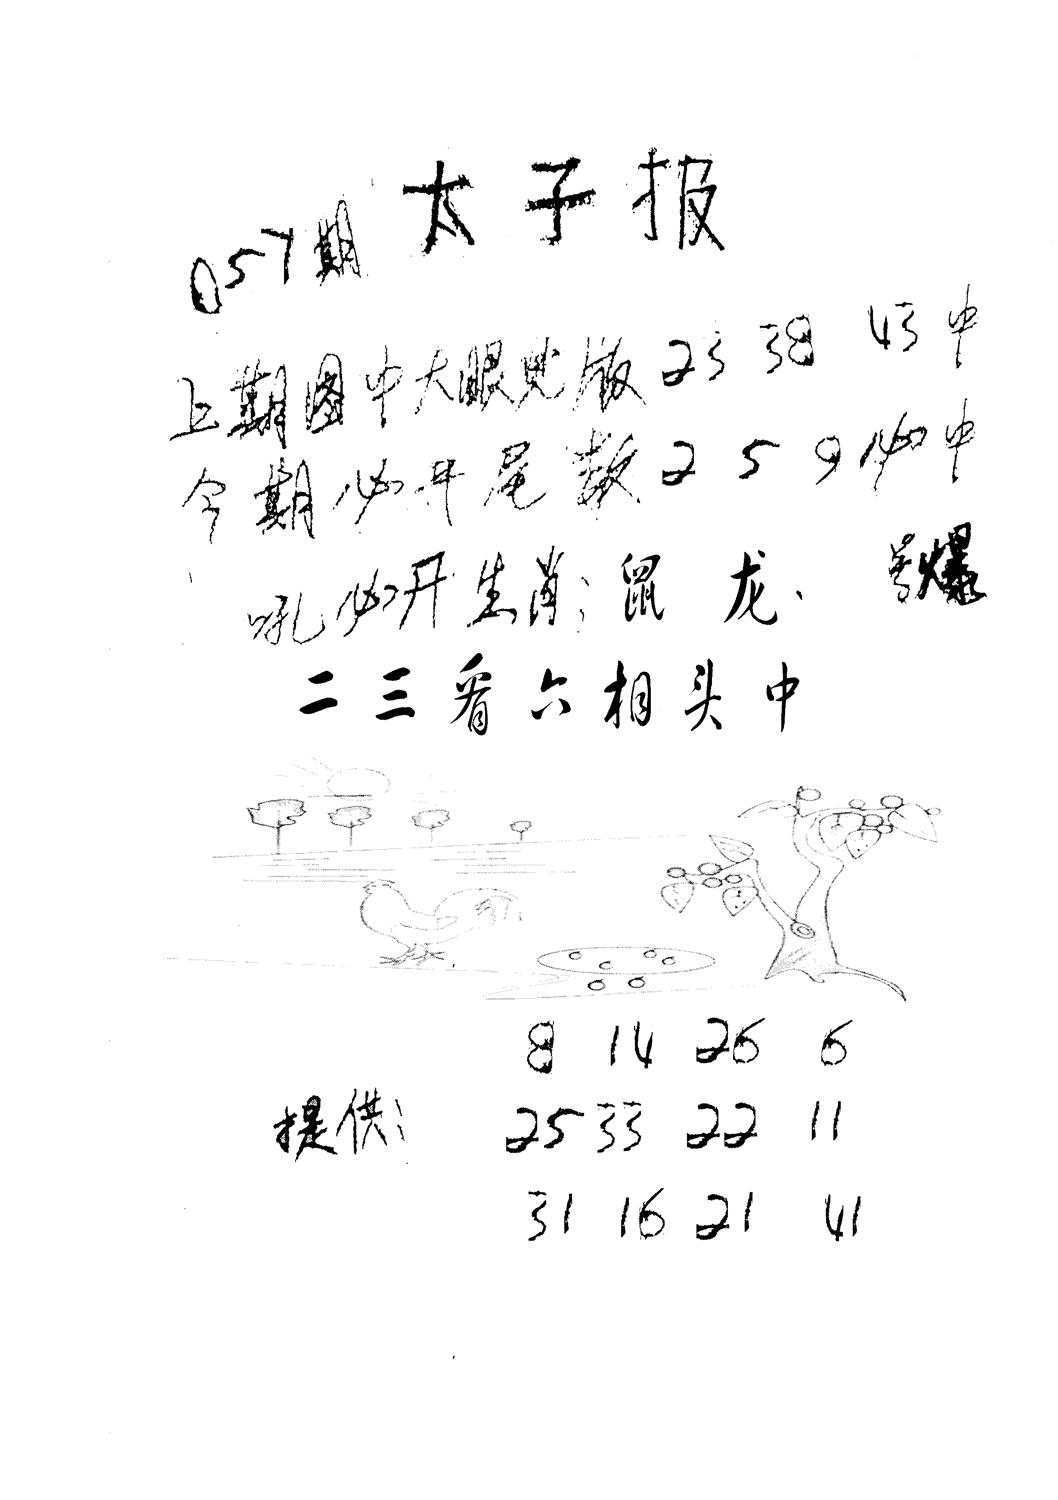 太子报
057期
上期图中大眼见版 23 38 43中
今期必开尾数 2 5 9 必中
吼必开生肖: 鼠 龙、 爆
二三看六相头中
8 14 26 6
提供: 25 33 22 11
31 16 21 41